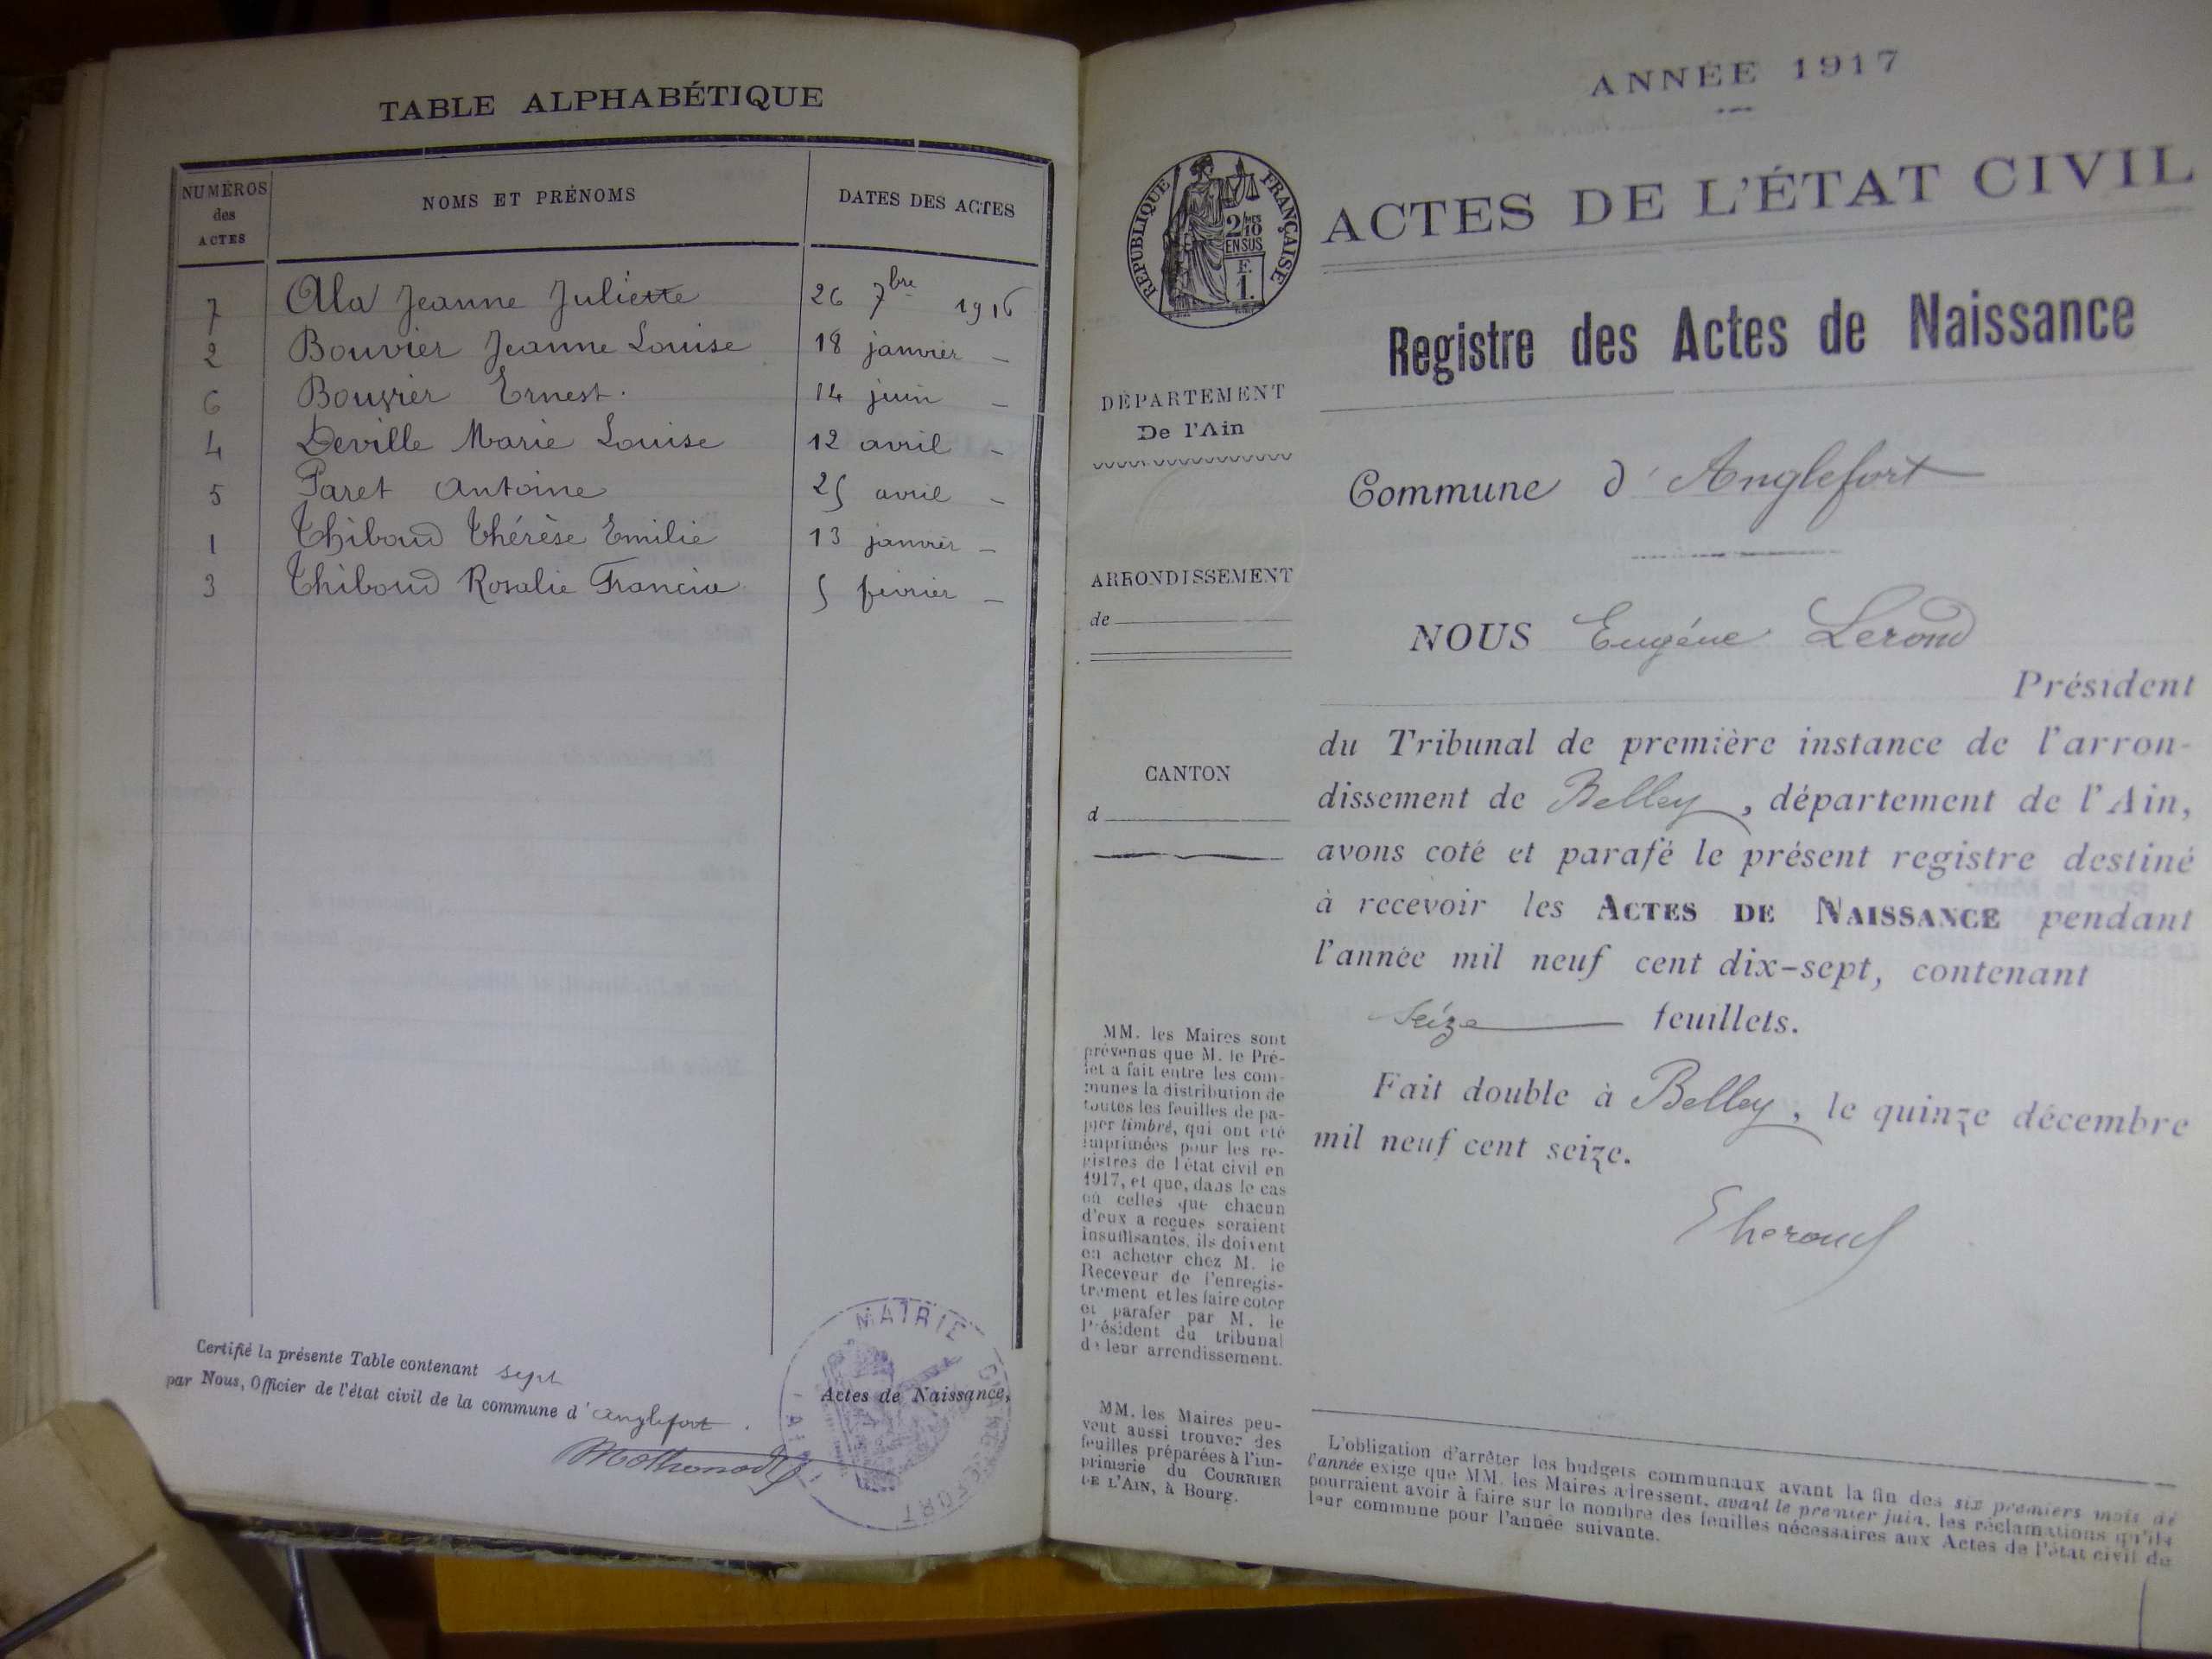 TABLE ALPHABÉTIQUE
NUMÉROS
des
ACTES
NOMS ET PRÉNOMS
DATES DES ACTES
7 Ala Jeanne Juliette 26 7bre 1916
2 Bouvier Jeanne Louise 18 janvier –
6 Bouvier Ernest. 14 juin –
4 Deville Marie Louise 12 avril –
5 Paret Antoine 25 avril –
1 Thiboud Thérèse Emilie 13 janvier –
3 Thiboud Rosalie Francia 5 février –
Certifié la présente Table contenant sept Actes de Naissance,
par Nous, Officier de l'état civil de la commune d'Anglefort.
MAIRIE D'ANGLEFORT
(AIN)
ANNÉE 1917
ACTES DE L'ÉTAT CIVIL
RÉPUBLIQUE FRANÇAISE
EN SUS
F.
1.
Registre des Actes de Naissance
DÉPARTEMENT
De l'Ain
Commune d'Anglefort
ARRONDISSEMENT
de
CANTON
d
NOUS Eugéne Lerond
Président
du Tribunal de première instance de l'arron-
dissement de Belley, département de l'Ain,
avons coté et parafé le présent registre destiné
à recevoir les ACTES DE NAISSANCE pendant
l'année mil neuf cent dix-sept, contenant
seize feuillets.
Fait double à Belley, le quinze décembre
mil neuf cent seize.
MM. les Maires sont
prévenus que M. le Pré-
fet a fait entre les com-
munes la distribution de
toutes les feuilles de pa-
pier timbré, qui ont été
imprimées pour les re-
gistres de l'état civil en
1917, et que, dans le cas
où celles que chacun
d'eux a reçues seraient
insuffisantes, ils doivent
en acheter chez M. le
Receveur de l'enregis-
trement et les faire coter
et parafer par M. le
Président du tribunal
de leur arrondissement.
MM. les Maires peu-
vent aussi trouver des
feuilles préparées à l'im-
primerie du COURRIER
DE L'AIN, à Bourg.
L'obligation d'arrêter les budgets communaux avant la fin des six premiers mois de
l'année exige que MM. les Maires adressent, avant le premier juin, les réclamations qu'ils
pourraient avoir à faire sur le nombre des feuilles nécessaires aux Actes de l'état civil de
leur commune pour l'année suivante.